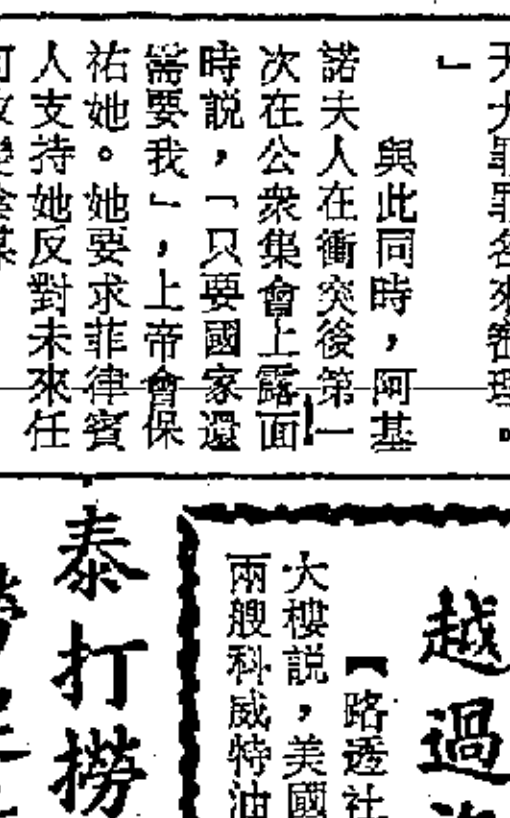 天大罪罪名來審理。
」
與此同時，阿基
諾夫人在衝突後第一
次在公衆集會上露面
時説，「只要國家還
需要我」，上帝會保
祐她。她要求菲律賓
人支持她反對未來任
越過
【路透社
大樓説，美國
兩艘科威特油
泰打撈